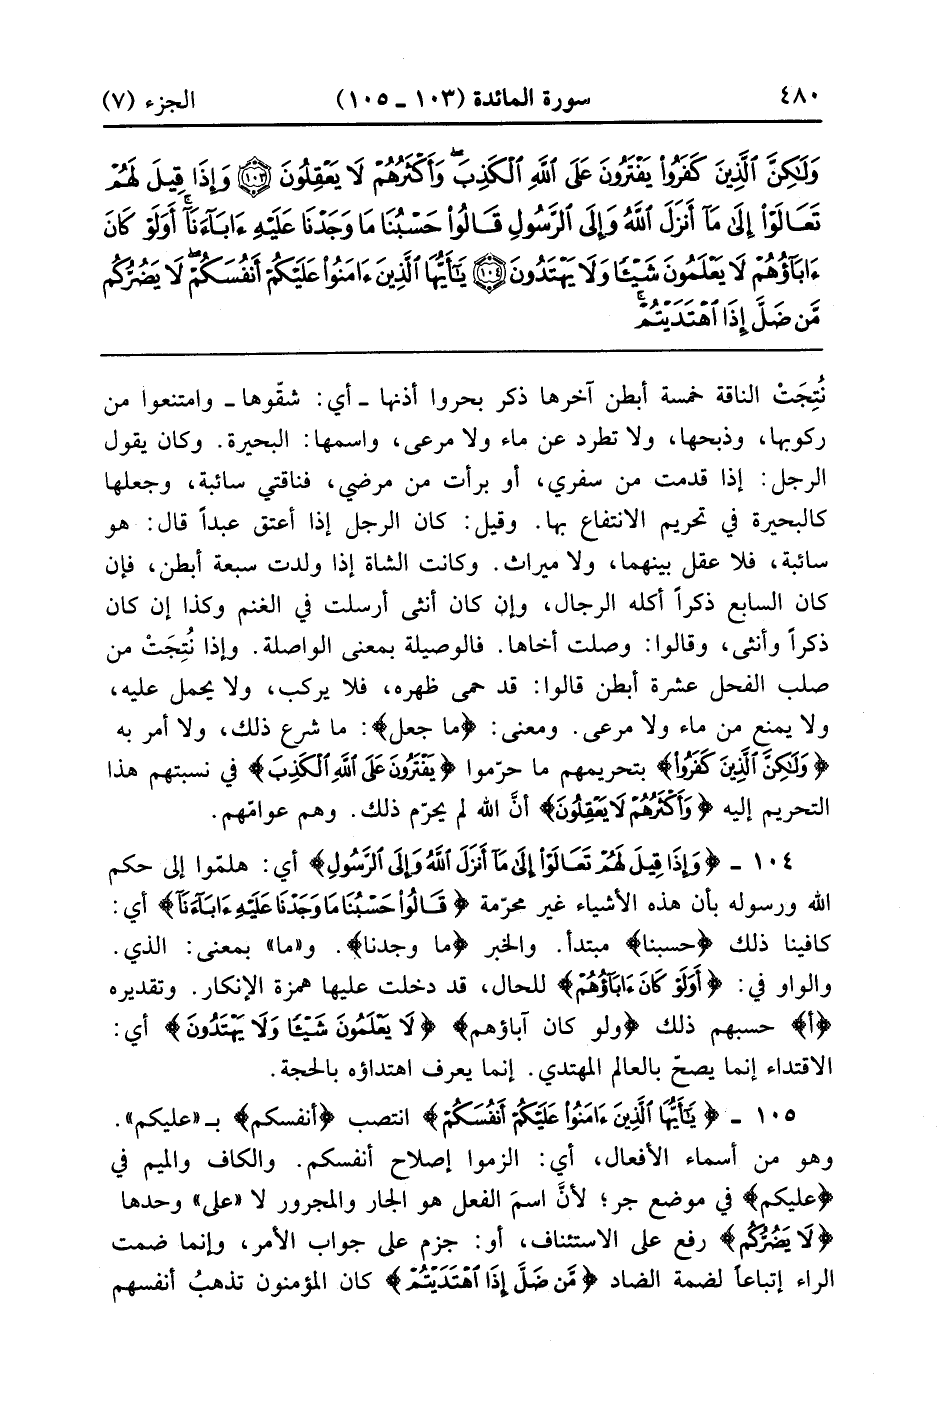 ٤٨٠ سورة المائدة (١٠٣ ـ ١٠٥) الجزء (٧)
وَلَٰكِنَّ ٱلَّذِينَ كَفَرُوا۟ يَفْتَرُونَ عَلَى ٱللَّهِ ٱلْكَذِبَ ۖ وَأَكْثَرُهُمْ لَا يَعْقِلُونَ ١٠٣ وَإِذَا قِيلَ لَهُمْ
تَعَالَوْا۟ إِلَىٰ مَآ أَنزَلَ ٱللَّهُ وَإِلَى ٱلرَّسُولِ قَالُوا۟ حَسْبُنَا مَا وَجَدْنَا عَلَيْهِ ءَابَآءَنَآ ۚ أَوَلَوْ كَانَ
ءَابَآؤُهُمْ لَا يَعْلَمُونَ شَيْـًٔا وَلَا يَهْتَدُونَ ١٠٤ يَـٰٓأَيُّهَا ٱلَّذِينَ ءَامَنُوا۟ عَلَيْكُمْ أَنفُسَكُمْ ۖ لَا يَضُرُّكُم
مَّن ضَلَّ إِذَا ٱهْتَدَيْتُمْ ۚ
نُتِجَتْ الناقة خمسة أبطن آخرها ذكر بحروا أذنها ـ أي: شقّوها ـ وامتنعوا من
ركوبها، وذبحها، ولا تطرد عن ماء ولا مرعى، واسمها: البحيرة. وكان يقول
الرجل: إذا قدمت من سفري، أو برأت من مرضي، فناقتي سائبة، وجعلها
كالبحيرة في تحريم الانتفاع بها. وقيل: كان الرجل إذا أعتق عبداً قال: هو
سائبة، فلا عقل بينهما، ولا ميراث. وكانت الشاة إذا ولدت سبعة أبطن، فإن
كان السابع ذكراً أكله الرجال، وإن كان أنثى أرسلت في الغنم وكذا إن كان
ذكراً وأنثى، وقالوا: وصلت أخاها. فالوصيلة بمعنى الواصلة. وإذا نُتِجَتْ من
صلب الفحل عشرة أبطن قالوا: قد حمى ظهره، فلا يركب، ولا يحمل عليه،
ولا يمنع من ماء ولا مرعى. ومعنى: ﴿ما جعل﴾: ما شرع ذلك، ولا أمر به
﴿وَلَٰكِنَّ ٱلَّذِينَ كَفَرُوا۟﴾ بتحريمهم ما حرّموا ﴿يَفْتَرُونَ عَلَى ٱللَّهِ ٱلْكَذِبَ﴾ في نسبتهم هذا
التحريم إليه ﴿وَأَكْثَرُهُمْ لَا يَعْقِلُونَ﴾ أنَّ الله لم يحرّم ذلك. وهم عوامّهم.
١٠٤ ـ ﴿وَإِذَا قِيلَ لَهُمْ تَعَالَوْا۟ إِلَىٰ مَآ أَنزَلَ ٱللَّهُ وَإِلَى ٱلرَّسُولِ﴾ أي: هلمّوا إلى حكم
الله ورسوله بأن هذه الأشياء غير محرّمة ﴿قَالُوا۟ حَسْبُنَا مَا وَجَدْنَا عَلَيْهِ ءَابَآءَنَآ﴾ أي:
كافينا ذلك ﴿حسبنا﴾ مبتدأ. والخبر ﴿ما وجدنا﴾. و«ما» بمعنى: الذي.
والواو في: ﴿أَوَلَوْ كَانَ ءَابَآؤُهُمْ﴾ للحال، قد دخلت عليها همزة الإنكار. وتقديره
﴿أ﴾ حسبهم ذلك ﴿ولو كان آباؤهم﴾ ﴿لَا يَعْلَمُونَ شَيْـًٔا وَلَا يَهْتَدُونَ﴾ أي:
الاقتداء إنما يصحّ بالعالم المهتدي. إنما يعرف اهتداؤه بالحجة.
١٠٥ ـ ﴿يَـٰٓأَيُّهَا ٱلَّذِينَ ءَامَنُوا۟ عَلَيْكُمْ أَنفُسَكُمْ﴾ انتصب ﴿أنفسكم﴾ بـ«عليكم».
وهو من أسماء الأفعال، أي: الزموا إصلاح أنفسكم. والكاف والميم في
﴿عليكم﴾ في موضع جر؛ لأنَّ اسمَ الفعل هو الجار والمجرور لا «على» وحدها
﴿لَا يَضُرُّكُم﴾ رفع على الاستئناف، أو: جزم على جواب الأمر، وإنما ضمت
الراء إتباعاً لضمة الضاد ﴿مَّن ضَلَّ إِذَا ٱهْتَدَيْتُمْ﴾ كان المؤمنون تذهبُ أنفسهم